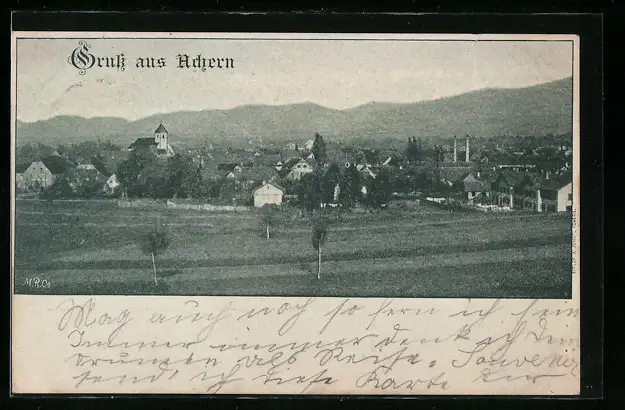 Gruß aus Achern
M.R.Co
Mag auch noch so fern ich sein
Immer immer denk ich Dein
drum als Reise-Souvenir
sende ich diese Karte Dir